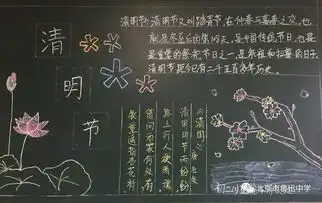 清
明
节
清明节:清明节又叫踏青节,在仲春与暮春之交,也
就是冬至后的第108天。是中国传统节日,也是
最重要的祭祀节日之一,是祭祖和扫墓的日子。
清明节距今已有二千五百多年历史。
《清明》
清明时节雨纷纷,
路上行人欲断魂。
借问酒家何处有,
牧童遥指杏花村。